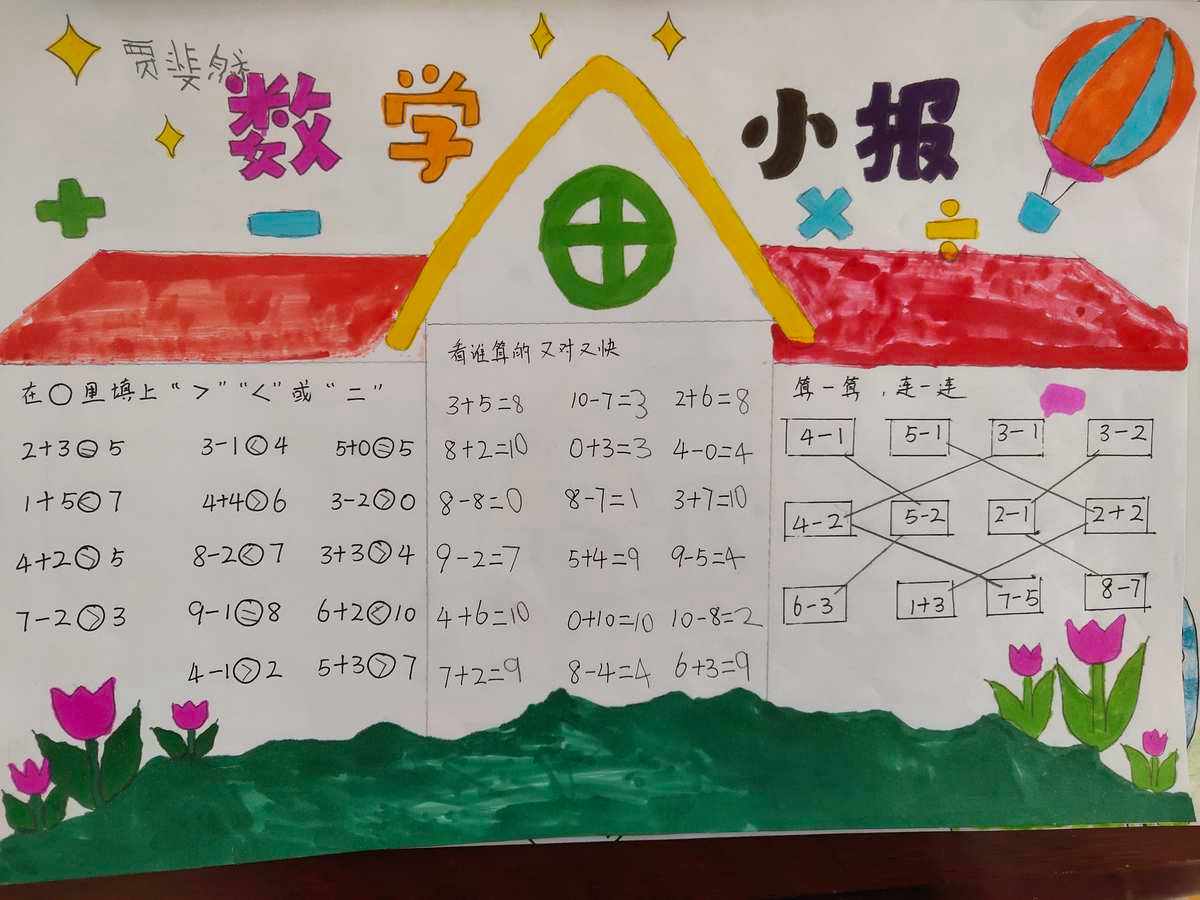 贾斐然
数学小报
在○里填上“>”“<”或“=”
2+3=5 3-1<4 5+0=5
1+5<7 4+4>6 3-2>0
4+2>5 8-2<7 3+3>4
7-2>3 9-1=8 6+2<10
4-1>2 5+3>7
看谁算的又对又快
3+5=8 10-7=3 2+6=8
8+2=10 0+3=3 4-0=4
8-8=0 8-7=1 3+7=10
9-2=7 5+4=9 9-5=4
4+6=10 0+10=10 10-8=2
7+2=9 8-4=4 6+3=9
算一算,连一连
4-1 5-1 3-1 3-2
4-2 5-2 2-1 2+2
6-3 1+3 7-5 8-7